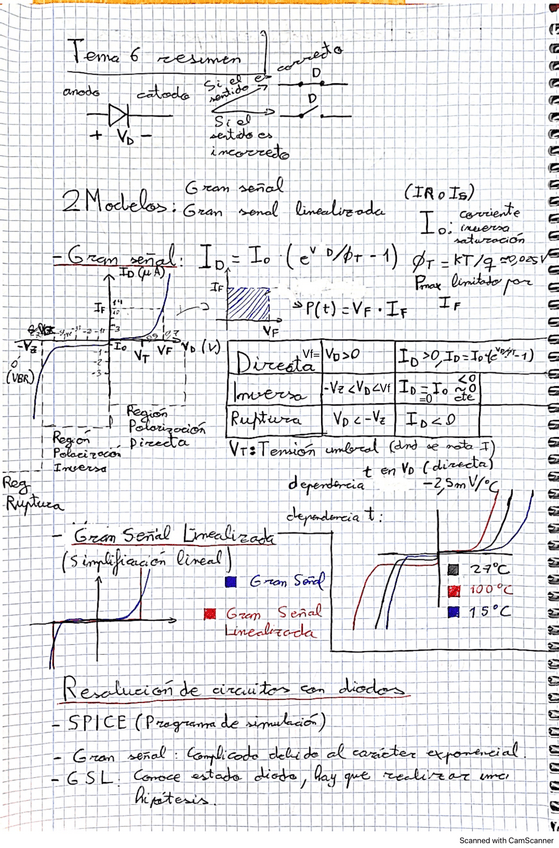 Tema 6 resumen
Si el sentido es correcto
D
anodo cátodo
+ VD -
D
Si el sentido es incorrecto
2 Modelos: Gran señal
Gran senal linealizada
(IR o Is)
Io: corriente inversa saturación
- Gran señal: ID = Io · (e^VD/ϕT - 1) ϕT = KT/q ≈ 0,025V
Pmax limitado por IF
ID (μA)
IF
Io
-Vz
(VBR)
VT VF VD (V)
IF
VF
⇒ P(t) = VF · IF
Directa VD > 0 ID > 0, ID = Io·(e^VD/ϕT - 1)
Inversa -Vz < VD < Vf ID = Io <0 ≈0 cte
Ruptura VD < -Vz ID < 0
Región Polarización Directa
Región Polarización Inversa
Reg Ruptura
VT: Tensión umbral (dnd se nota I)
dependencia t en VD (directa)
-2,5mV/°C
dependencia t:
- Gran Señal Linealizada
(Simplificación lineal)
Gran Señal
Gran Señal Linealizada
27°C
100°C
15°C
Resolución de circuitos con diodos
- SPICE (Programa de simulación)
- Gran señal: Complicado debido al carácter exponencial.
- G S L. Conoce estado diodo, hay que realizar una
hipótesis.
Scanned with CamScanner